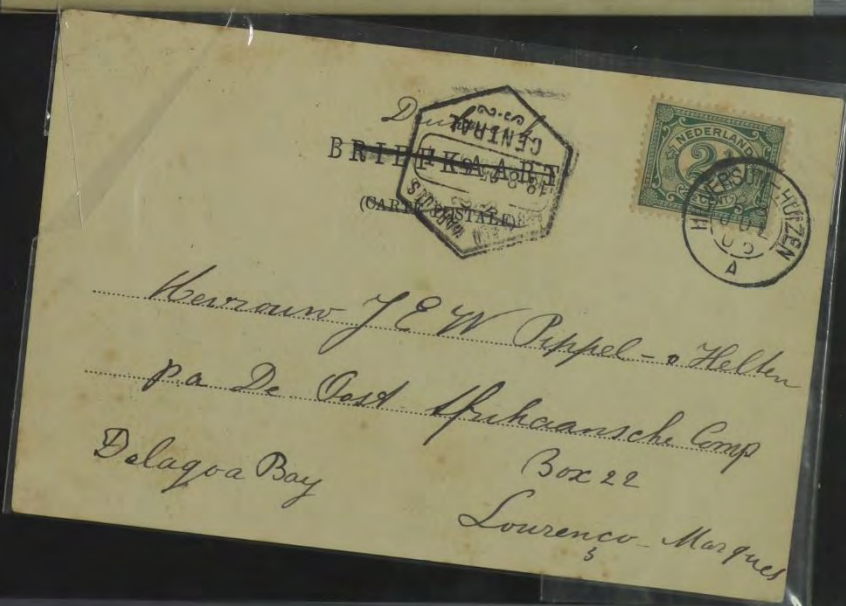 Drukwerk
BRIEFKAART
(CARTE POSTALE)
CENTRAL
MARQUES
NEDERLAND
2½
CENT
HILVERSUM-HUIZEN
A
Mevrouw J E W Pippel - v Helten
p.a De Oost Afrikaansche Comp
Box 22
Delagoa Bay
Lourenço - Marques